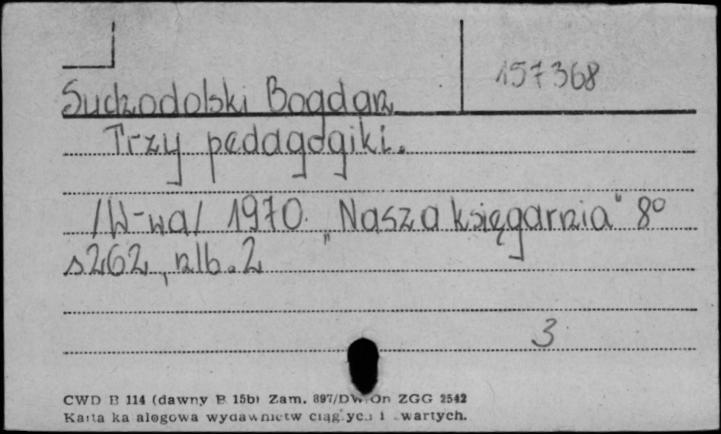 157368
Suchodolski Bogdan
Trzy pedagogiki.
/W-wa/ 1970. "Nasza księgarnia" 8°
s262, nlb. 2
3
CWD B 114 (dawny B 15b) Zam. 897/DW/On ZGG 2542
Karta katalogowa wydawnictw ciągłych i zwartych.